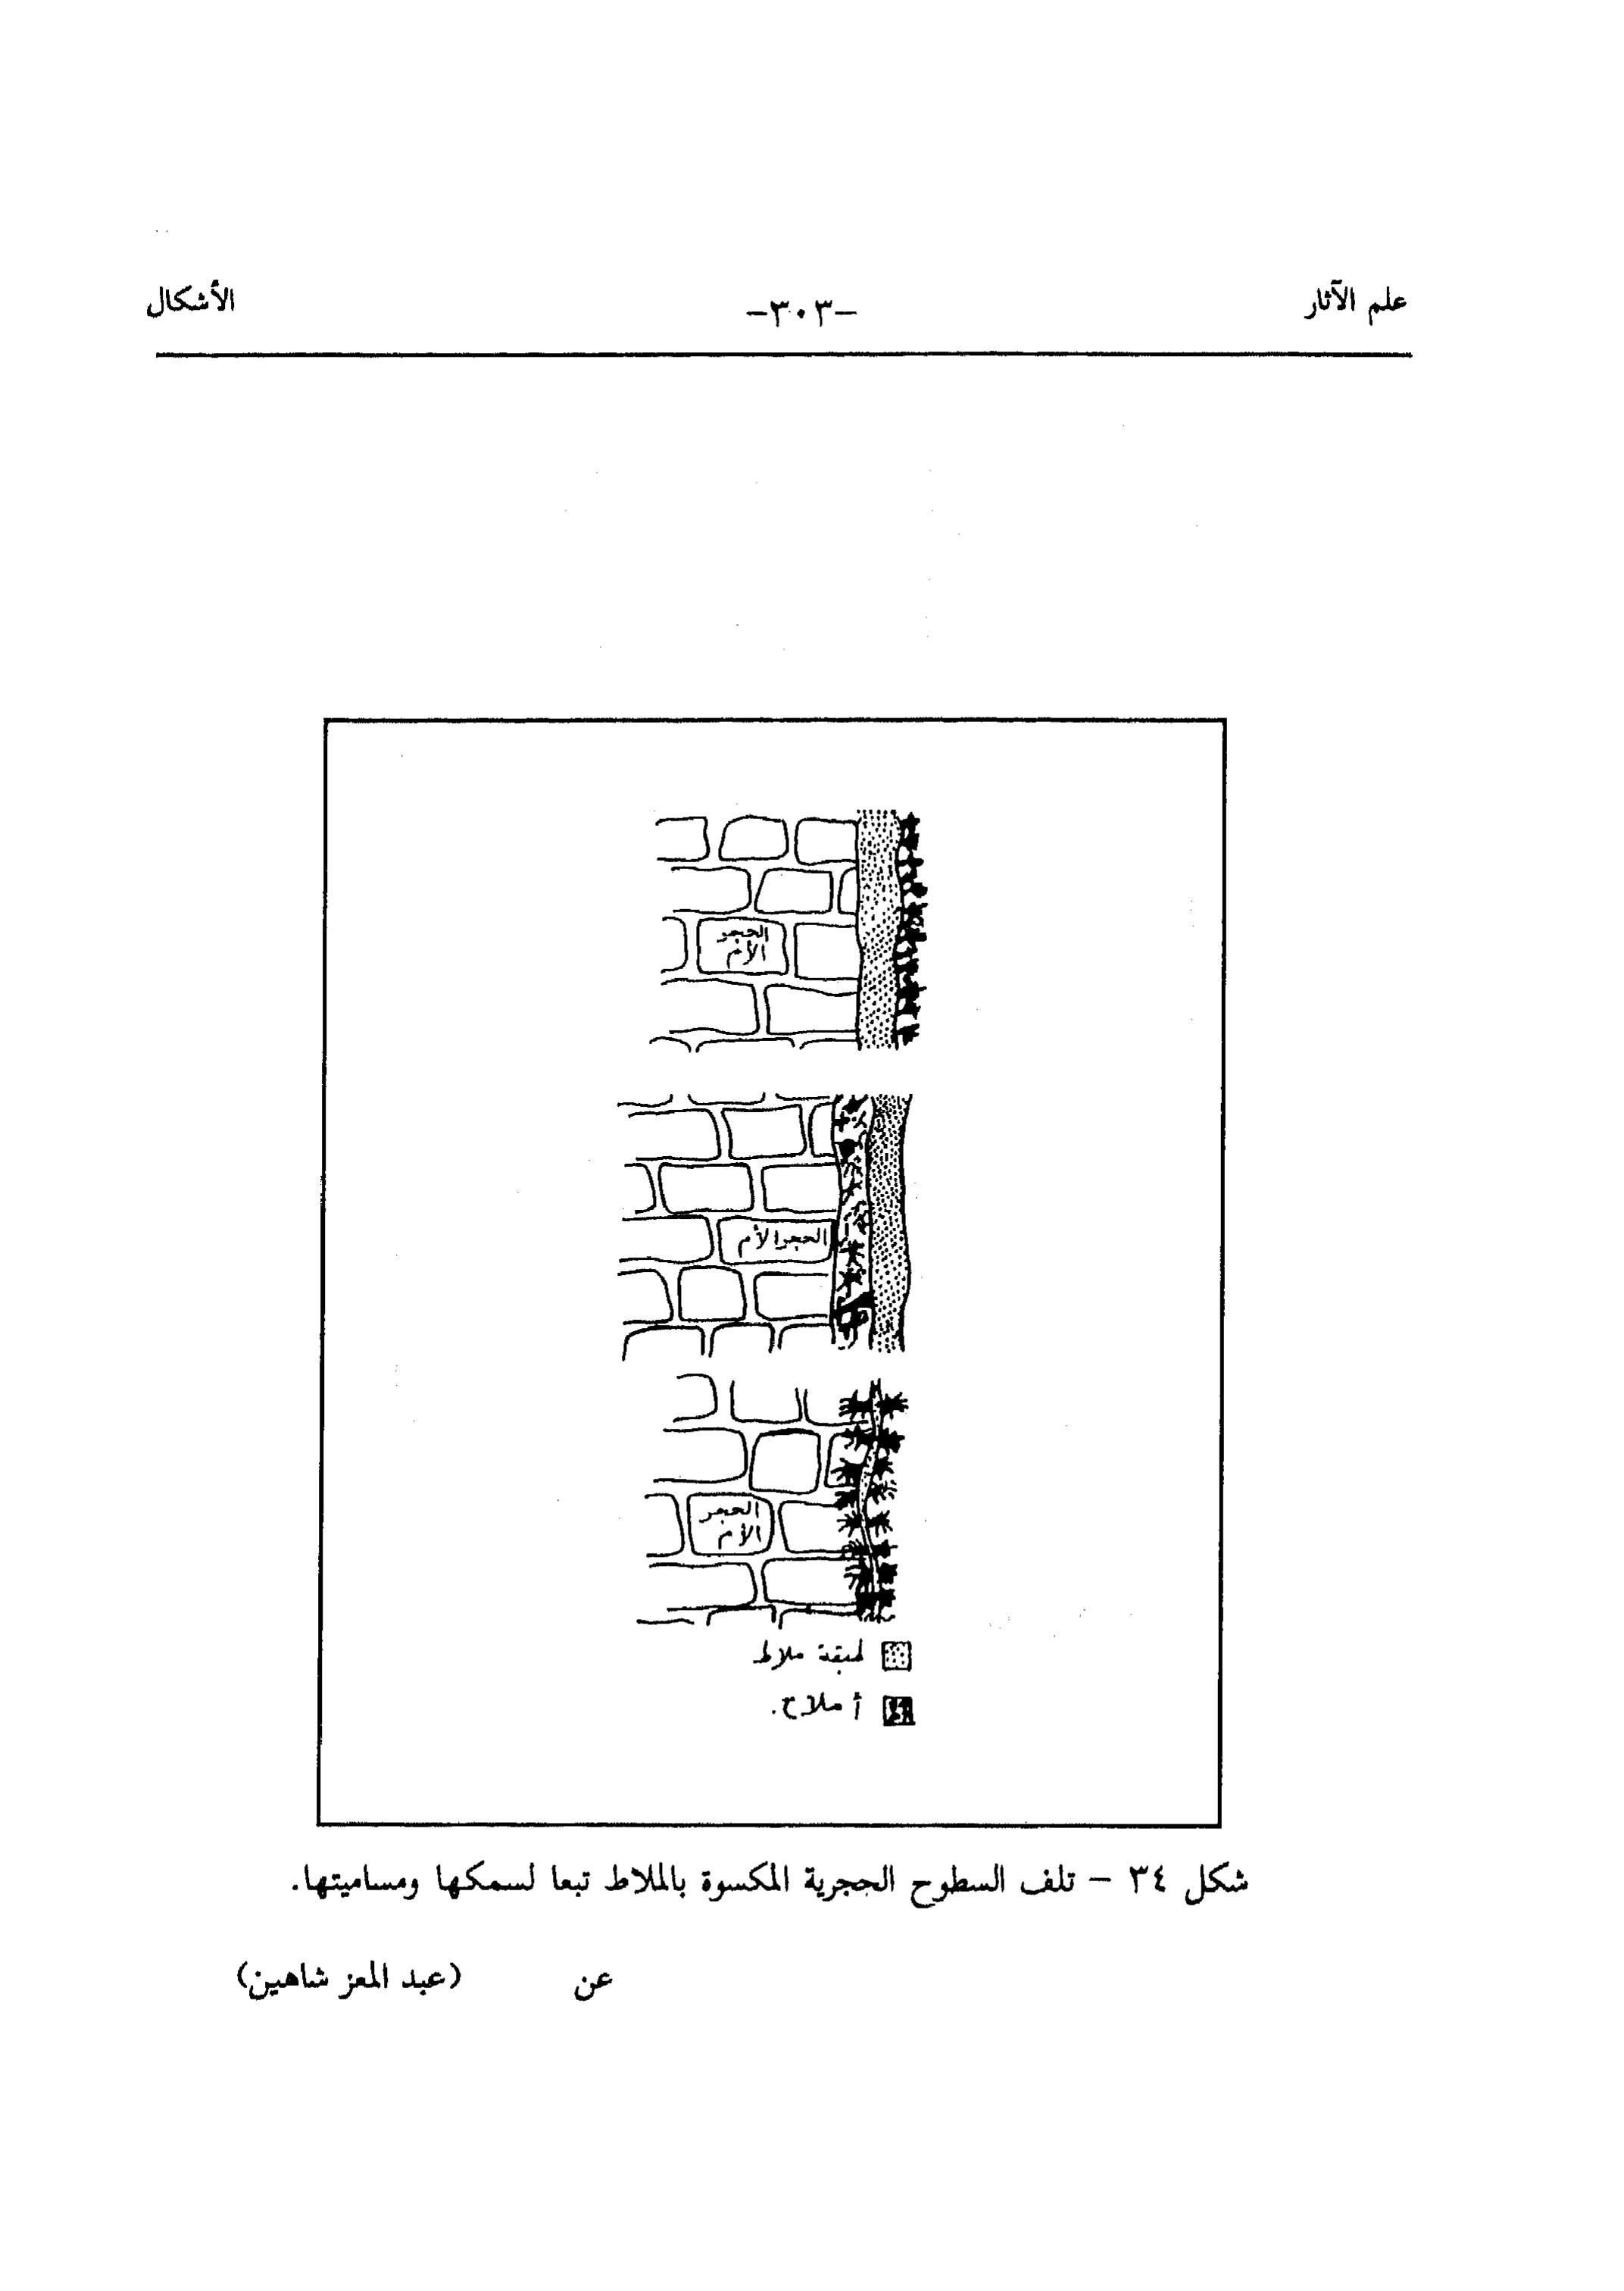 علم الآثار -٣٠٣- الأشكال
الحجر
الأم
الحجر الأم
الحجر
الأم
طبقة ملاط
أملاح.
شكل ٣٤ - تلف السطوح الحجرية المكسوة بالملاط تبعا لسمكها ومساميتها.
عن (عبد المعز شاهين)